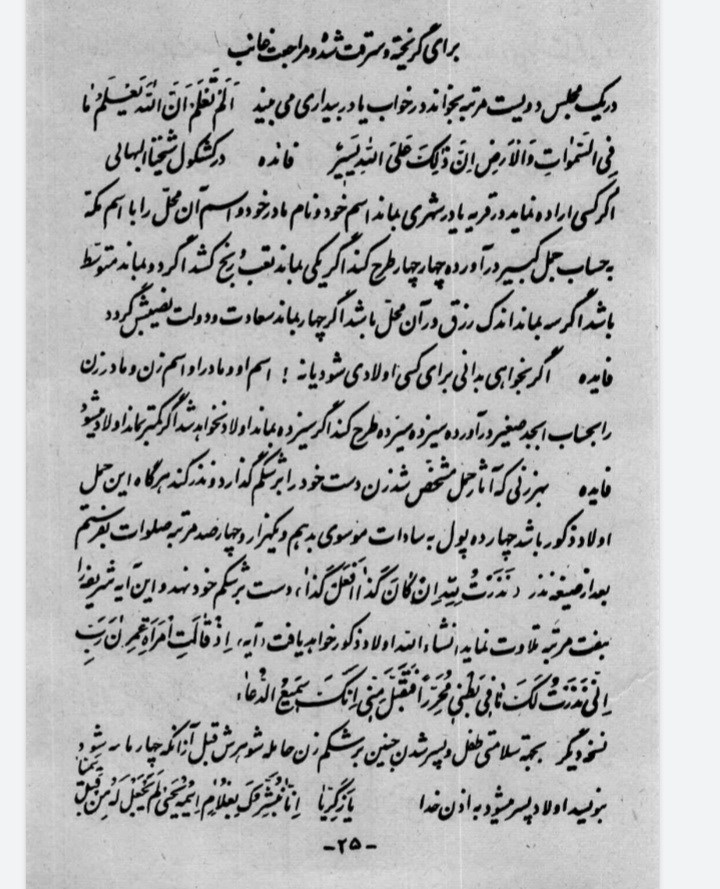 برای گریخته و سرقت شده و مراجعت غائب
در یک مجلس دویست مرتبه بخواند در خواب یا در بیداری می بیند اَلَمْ تَعْلَمْ اَنَّ اللّهَ یَعْلَمُ مٰا
فِی السَّمٰوٰاتِ وَالْاَرْضِ اِنَّ ذٰلِکَ عَلَی اللّهِ یَسیرٌ فائده در کشکول شیخنا البهائی
اگر کسی اراده نماید در قریه یا در شهری بماند اسم خود و نام مادر خود و اسم آن محل را با اسم مکه
به حساب جمل کبیر درآورده چهار چهار طرح کند اگر یکی بماند تعب و رنج کشد اگر دو بماند متوسط
باشد اگر سه بماند اندک رزق در آن محل باشد اگر چهار بماند سعادت و دولت نصیبش گردد
فایده اگر بخواهی بدانی برای کسی اولادی شود یا نه ! اسم او و مادر او اسم زن و مادر زن
را بحساب ابجد صغیر درآورده سیزده سیزده طرح کند اگر سیزده بماند اولاد نخواهد شد اگر کمتر بماند اولاد میشود
فایده هر زنی که آثار حمل مشخص شد زن دست خود را بر شکم گذارد و نذر کند هرگاه این حمل
اولاد ذکور باشد چهارده پول به سادات موسوی بدهم و یکهزار و چهارصد مرتبه صلوات بفرستم
بعد از صیغه نذر ، نَذَرْتُ لِلّهِ اِنْ کٰانَ کَذٰا اَفْعَلُ کَذٰا، دست بر شکم خود نهد و این آیه شریفه را
هفت مرتبه تلاوت نماید انشاء الله اولاد ذکور خواهد یافت ، آیه، اِذْ قٰالَتِ امْرَاَةُ عِمْرٰنَ رَبِّ
اِنّی نَذَرْتُ لَکَ مٰا فی بَطْنی مُحَرَّراً فَتَقَبَّلْ مِنّی اِنَّکَ سَمیعُ الدُّعٰاء
نسخه دیگر بجهة سلامتی طفل و پسر شدن جنین بر شکم زن حامله شوهرش قبل از آنکه چهار ماهه شود
بنویسد اولاد پسر میشود به اذن خدا یٰا زَکَرِیّٰا اِنّٰا نُبَشِّرُکَ بِغُلاٰمٍ اسْمُهُ یَحْییٰ لَمْ نَجْعَلْ لَهُ مِنْ قَبْلُ سَمِیّاً
-۲۵-